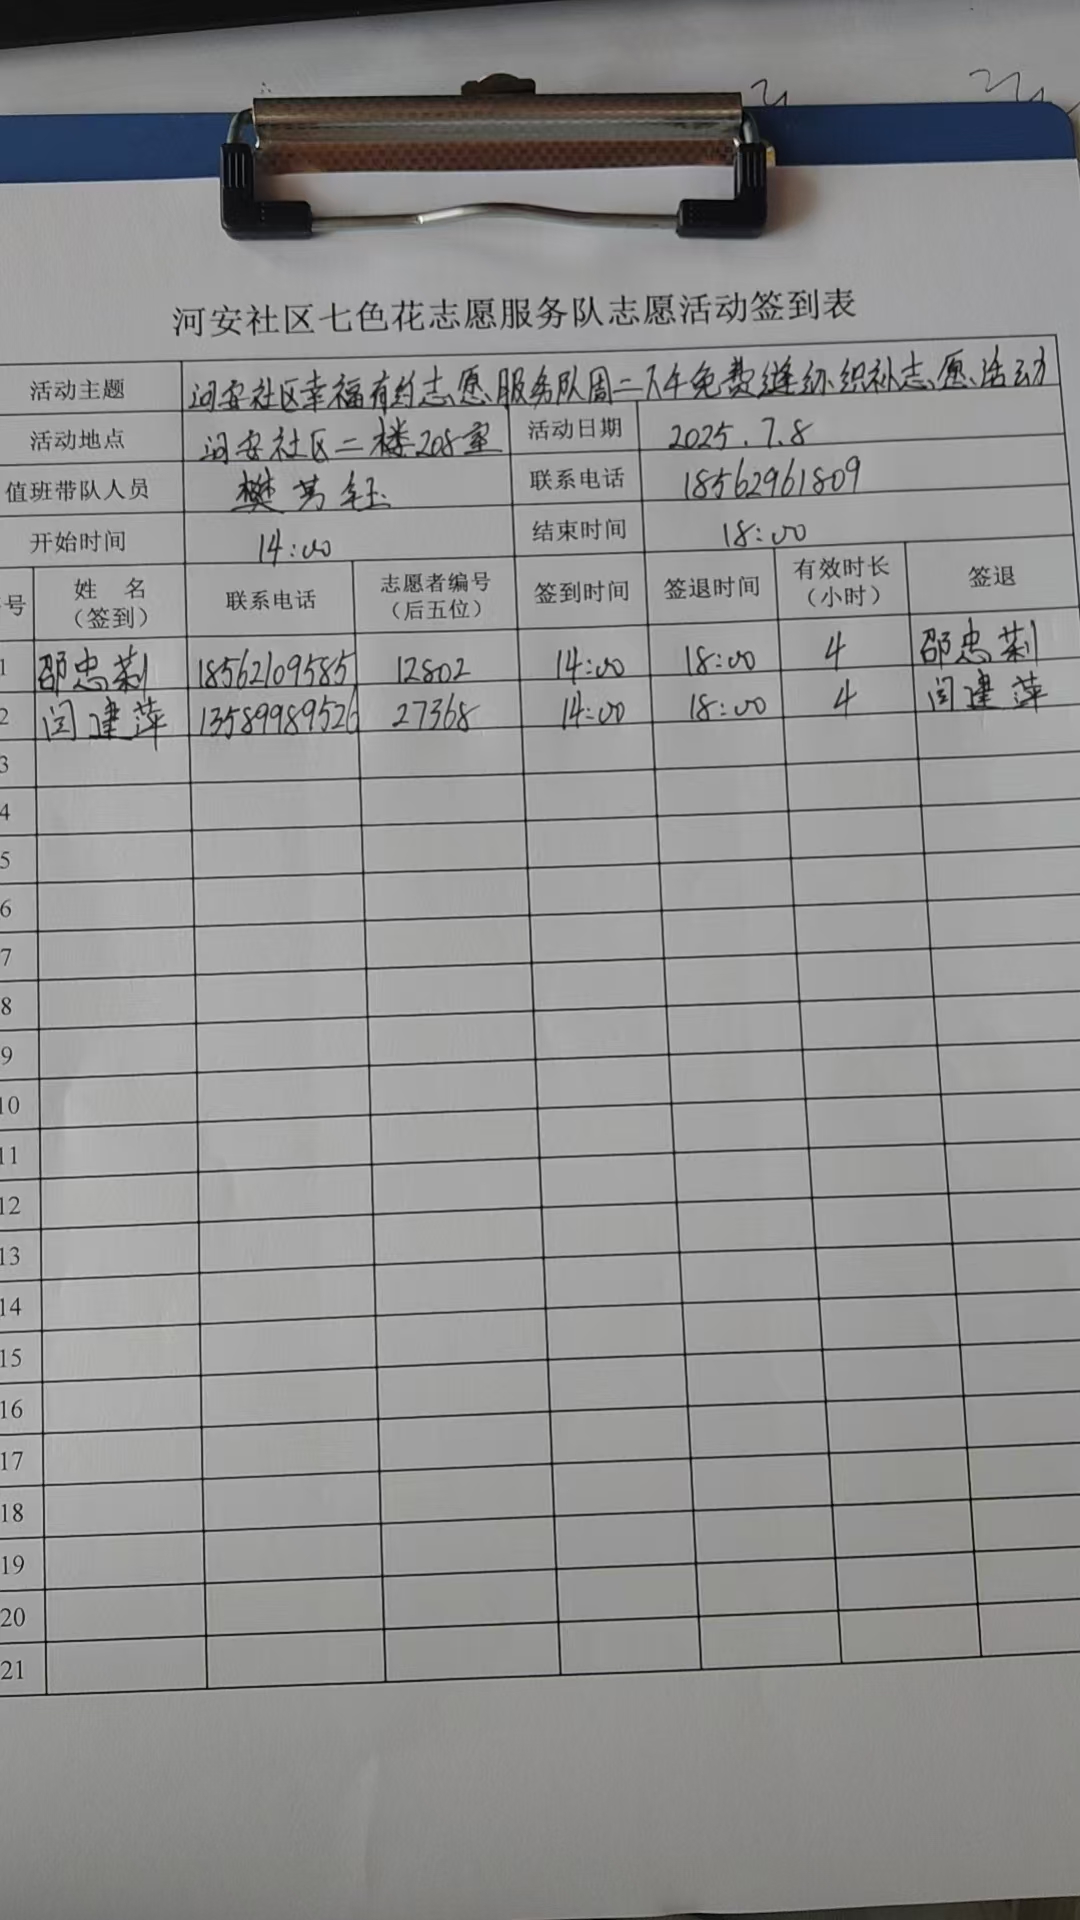 河安社区七色花志愿服务队志愿活动签到表
活动主题 河安社区幸福有约志愿服务队周二下午免费缝纫织补志愿活动
活动地点 河安社区二楼208室 活动日期 2025.7.8
值班带队人员 樊芳钰 联系电话 18562961809
开始时间 14:00 结束时间 18:00
号 姓 名（签到） 联系电话 志愿者编号（后五位） 签到时间 签退时间 有效时长（小时） 签退
1 邵忠莉 18562109585 12802 14:00 18:00 4 邵忠莉
2 闫建萍 13589989526 27368 14:00 18:00 4 闫建萍
3
4
5
6
7
8
9
10
11
12
13
14
15
16
17
18
19
20
21